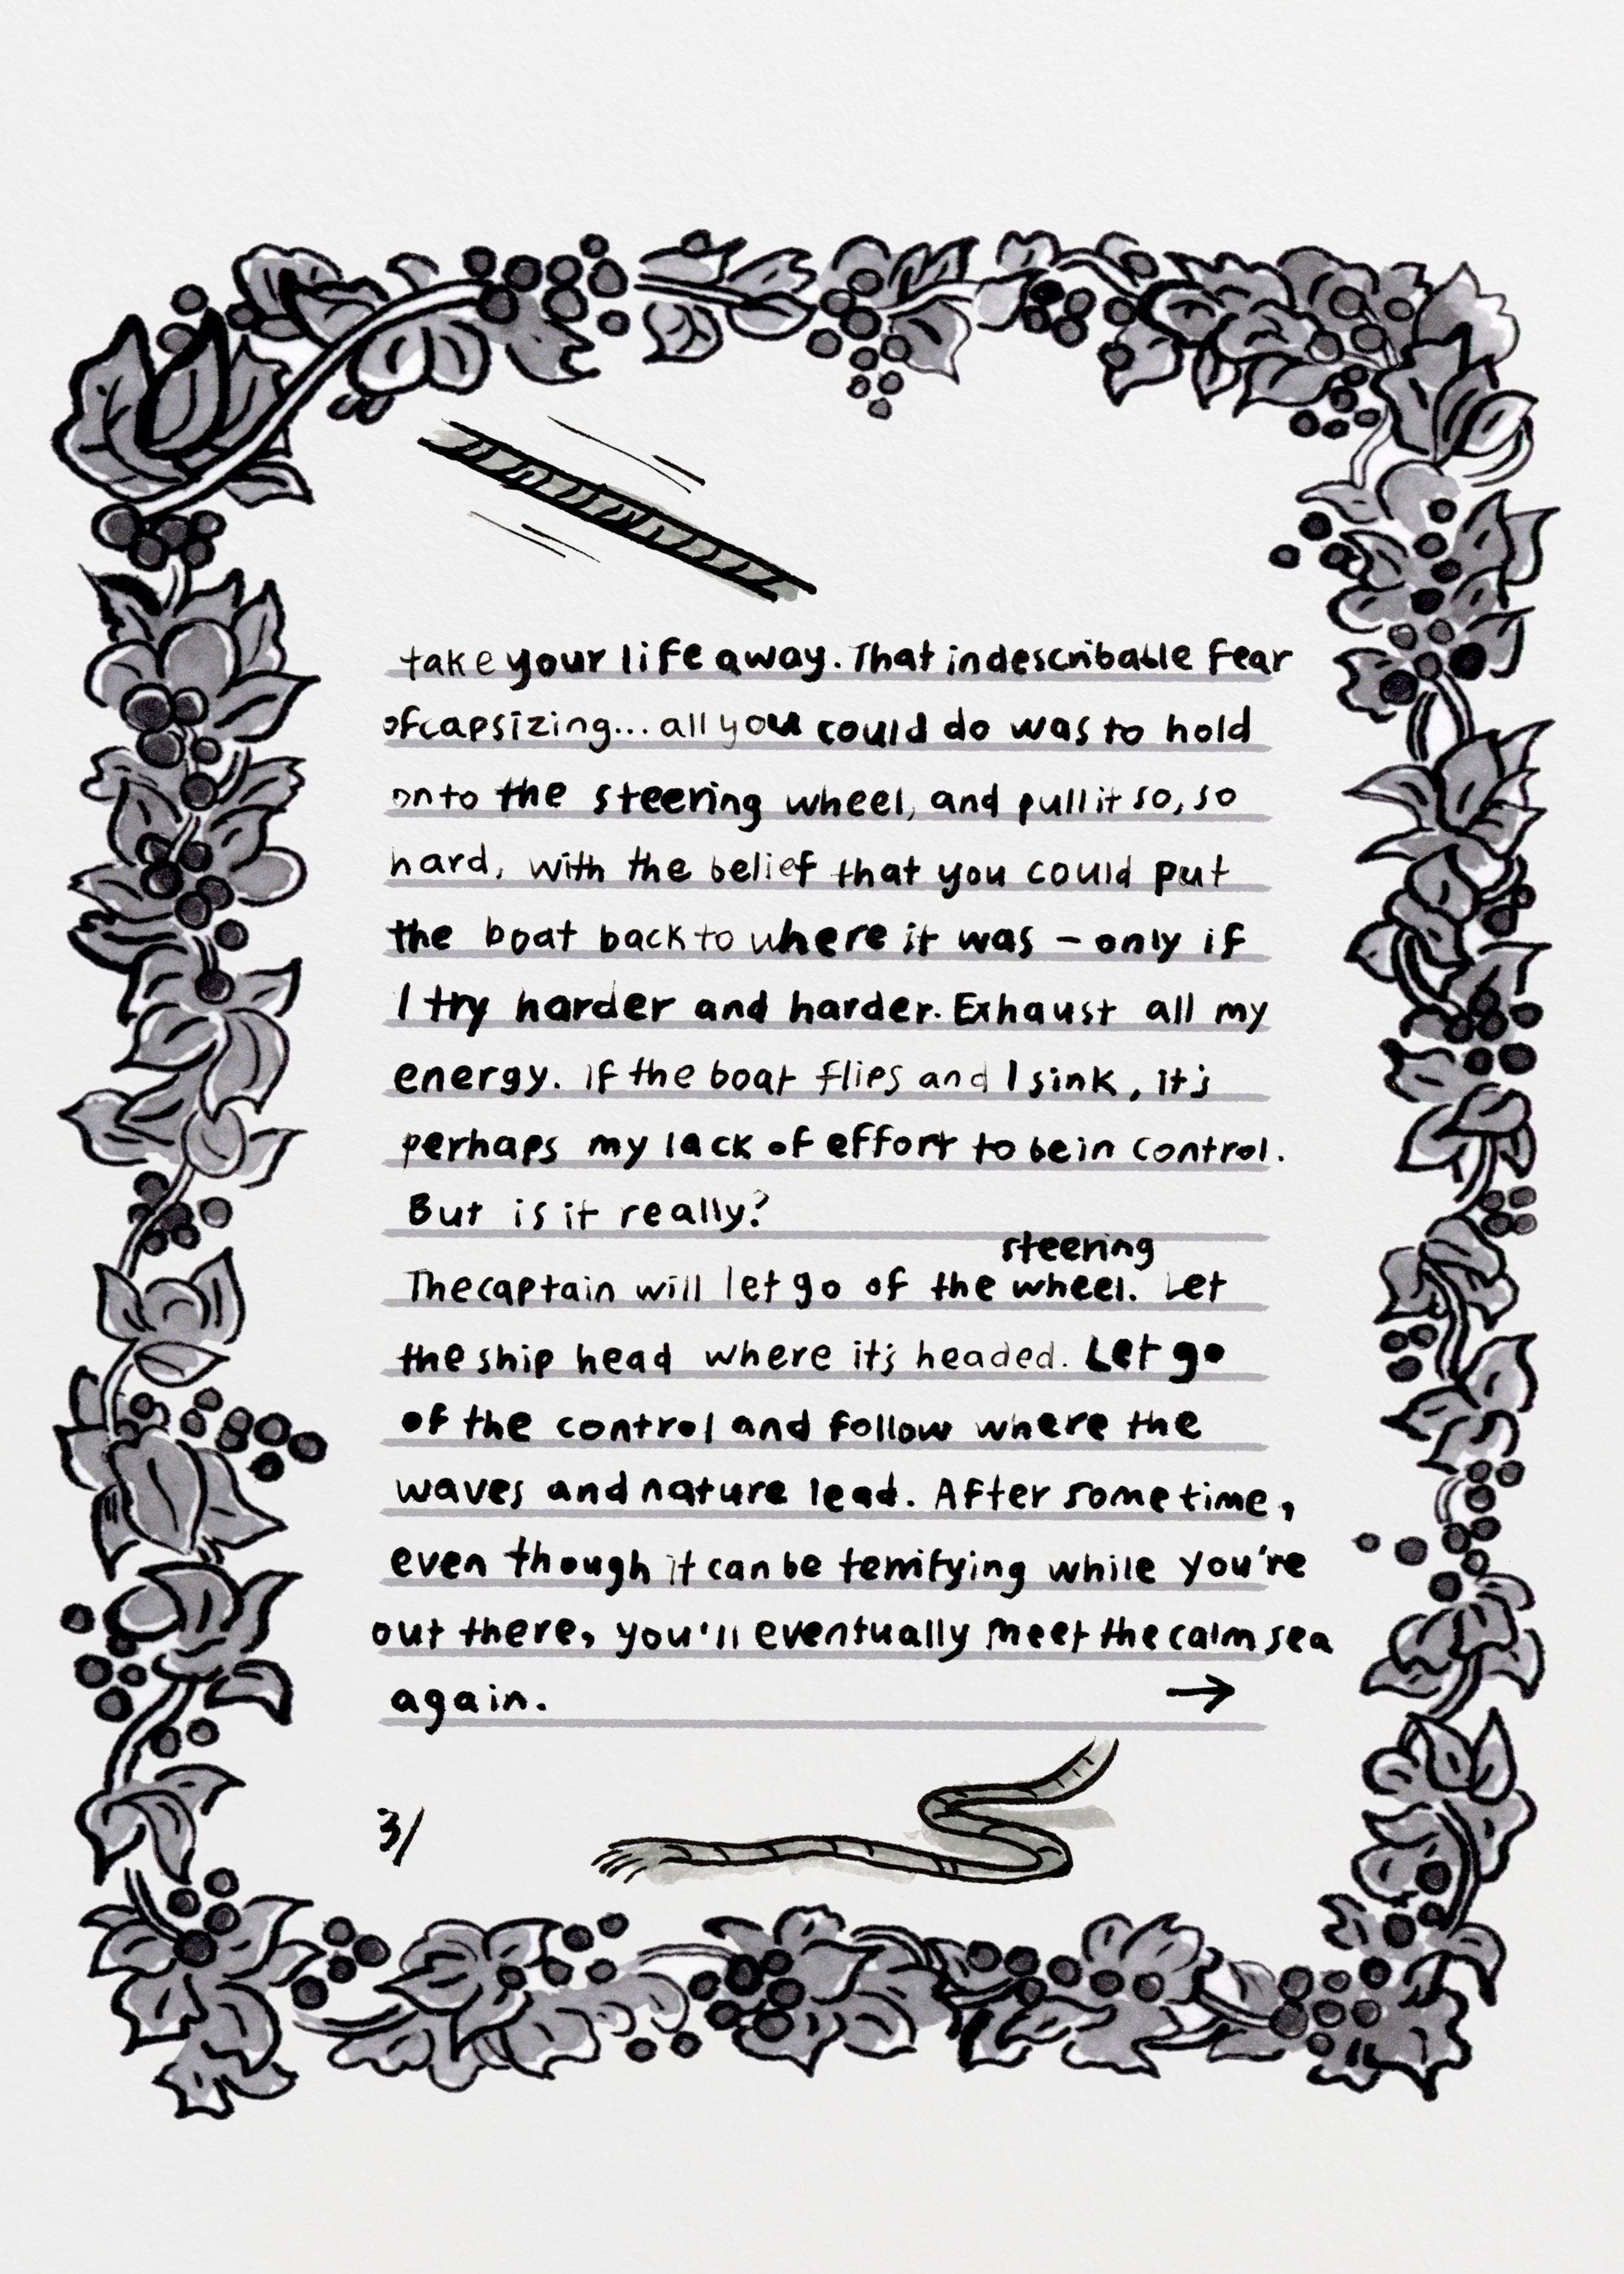 take your life away. That indescribable fear
of capsizing... all you could do was to hold
onto the steering wheel, and pull it so, so
hard, with the belief that you could put
the boat back to where it was – only if
I try harder and harder. Exhaust all my
energy. If the boat flips and I sink, it's
perhaps my lack of effort to be in control.
But is it really?
steering
The captain will let go of the wheel. Let
the ship head where it's headed. Let go
of the control and follow where the
waves and nature lead. After some time,
even though it can be terrifying while you're
out there, you'll eventually meet the calm sea
again. →
3/